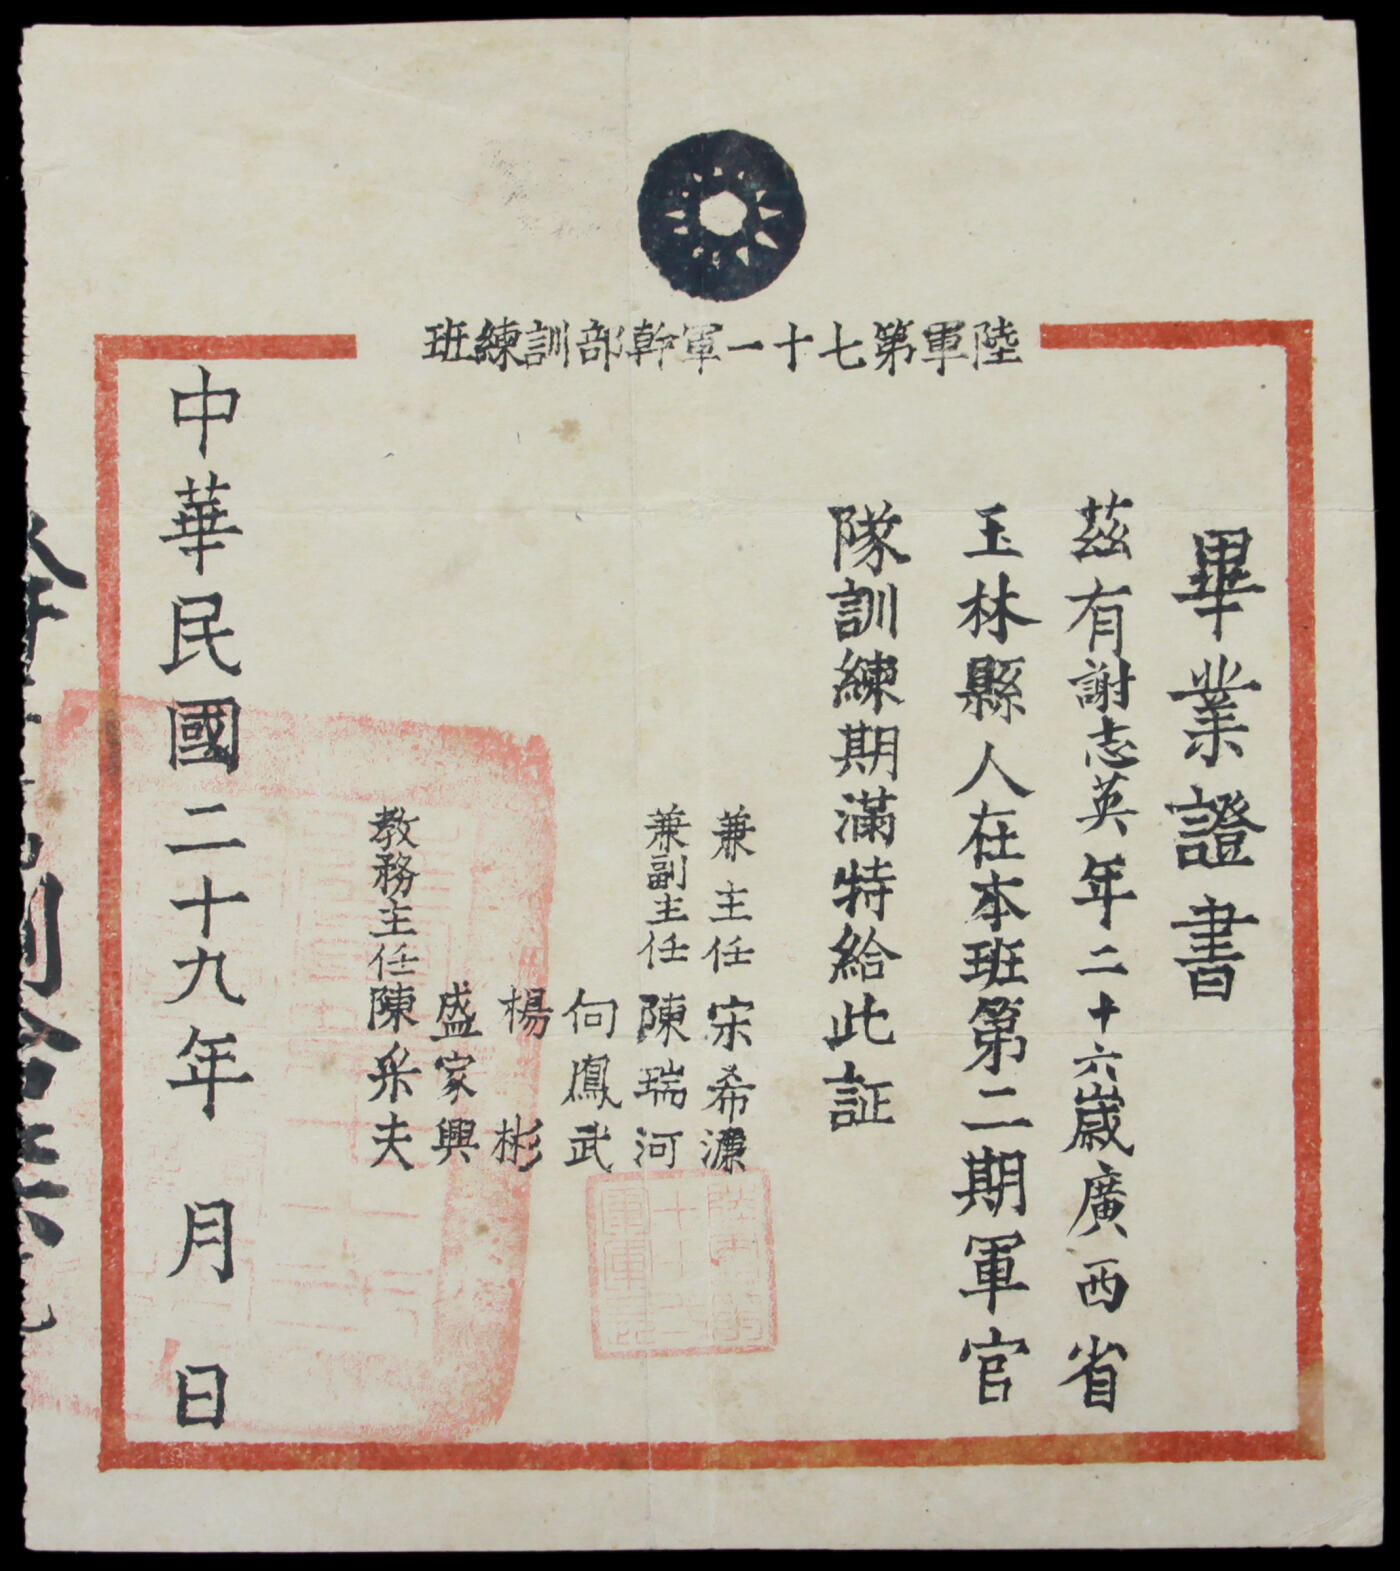 陸軍第七十一軍幹部訓練班
畢業證書
茲有謝志英年二十六歲廣西省
玉林縣人在本班第二期軍官
隊訓練期滿特給此証
兼主任宋希濂
兼副主任陳瑞河
向鳳武
楊彬
盛家興
教務主任陳采夫
中華民國二十九年 月 日